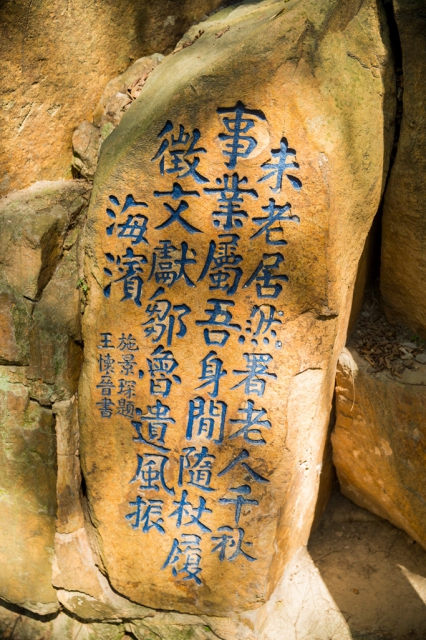 未老居然署老人千秋
事業屬吾身閒隨杖屨
徵文獻鄒魯遺風振
海濱
施景琛題
王懷晉書